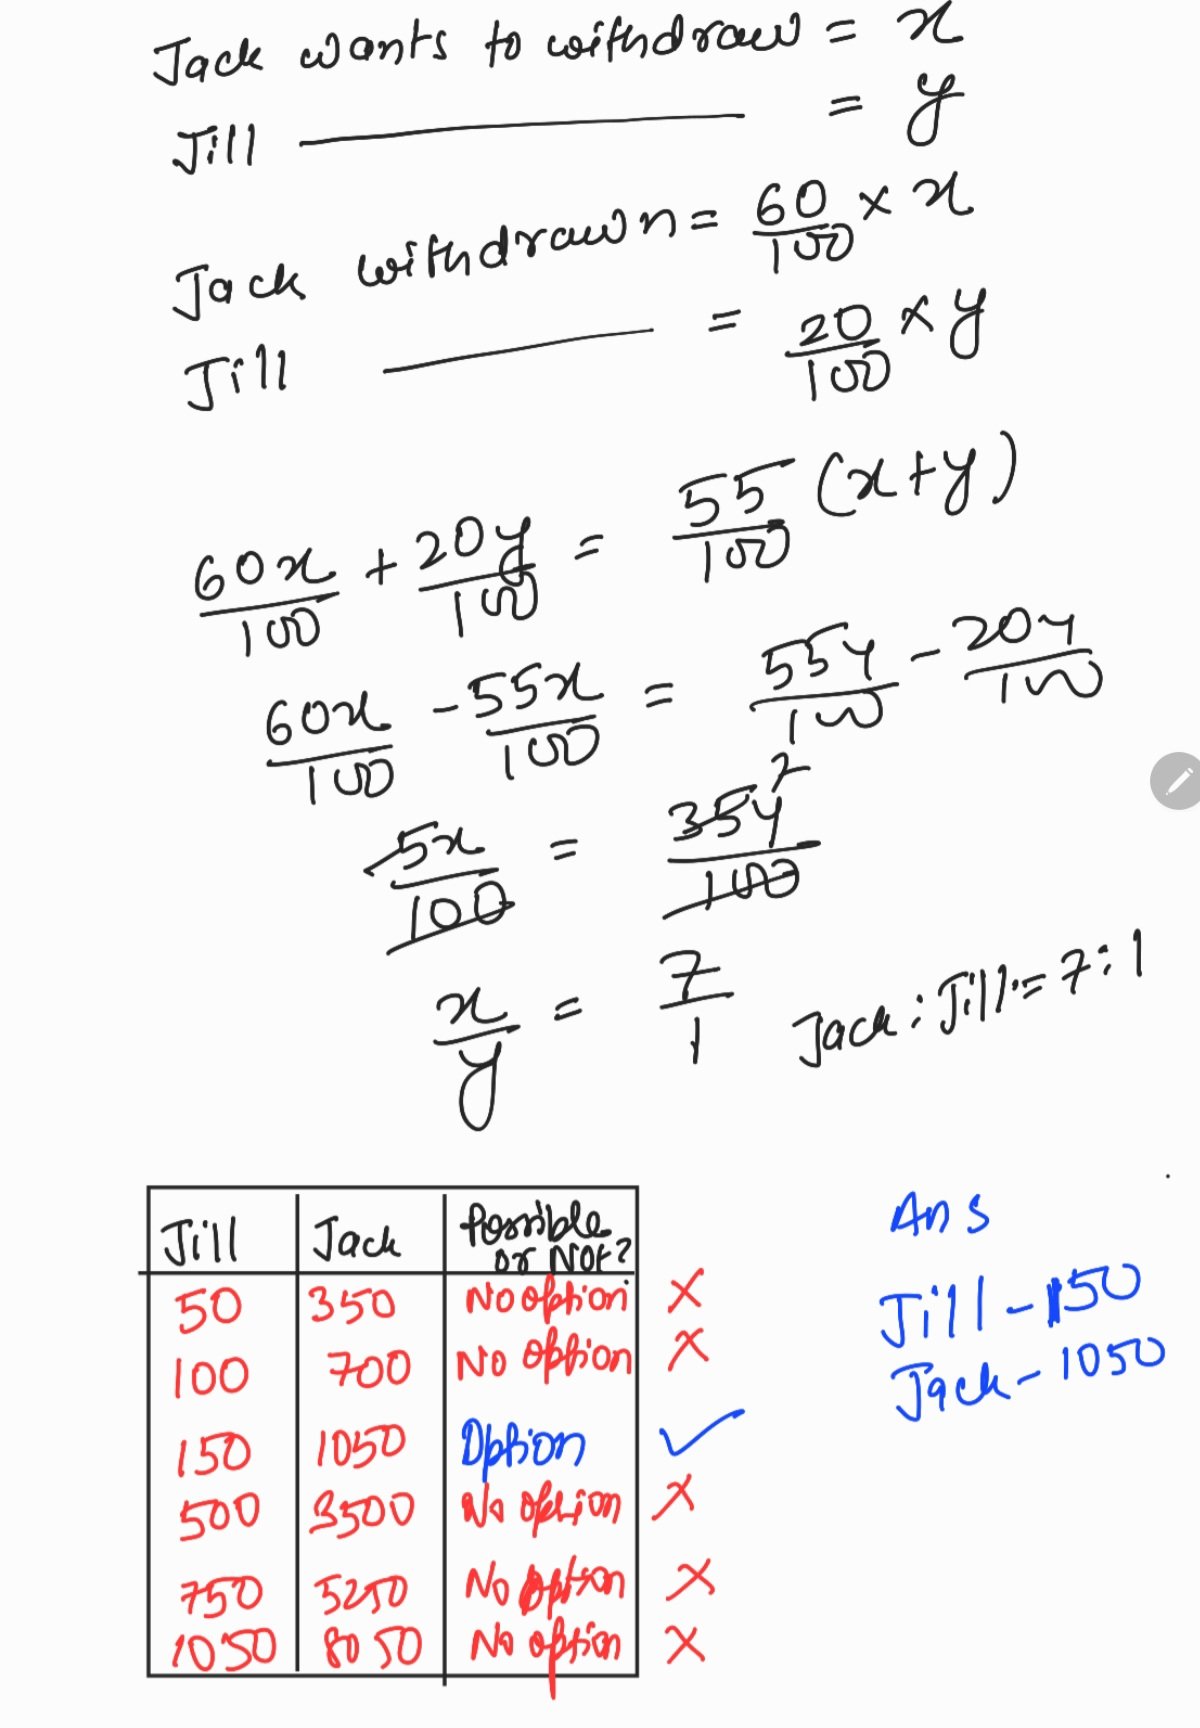 Jack wants to withdraw = x
Jill = y
Jack withdrawn = 60/100 × x
Jill = 20/100 × y
60x/100 + 20y/100 = 55/100 (x+y)
60x/100 - 55x/100 = 55y/100 - 20y/100
5x/100 = 35y/100 7
x/y = 7/1 Jack : Jill = 7:1
Jill Jack Possible or Not?
50 350 No option ×
100 700 No option ×
150 1050 Option ✓
500 3500 No option ×
750 5250 No option ×
1050 8050 No option ×
Ans
Jill - 150
Jack - 1050